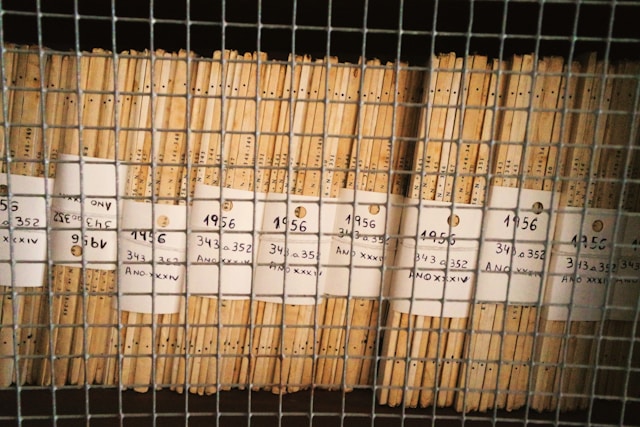 56
a 352
XXXIV
1956
343 a 352
ANO
1956
343 a 352
ANO XXXIV
1956
343 a 352
ANO XXXIV
1956
343 a 352
ANO XXXIV
1956
343 a 352
ANO XXXIV
1956
343 a 352
ANO XXXIV
1956
343 a 352
ANO XXXIV
1956
343 a 352
ANO XXXIV
343